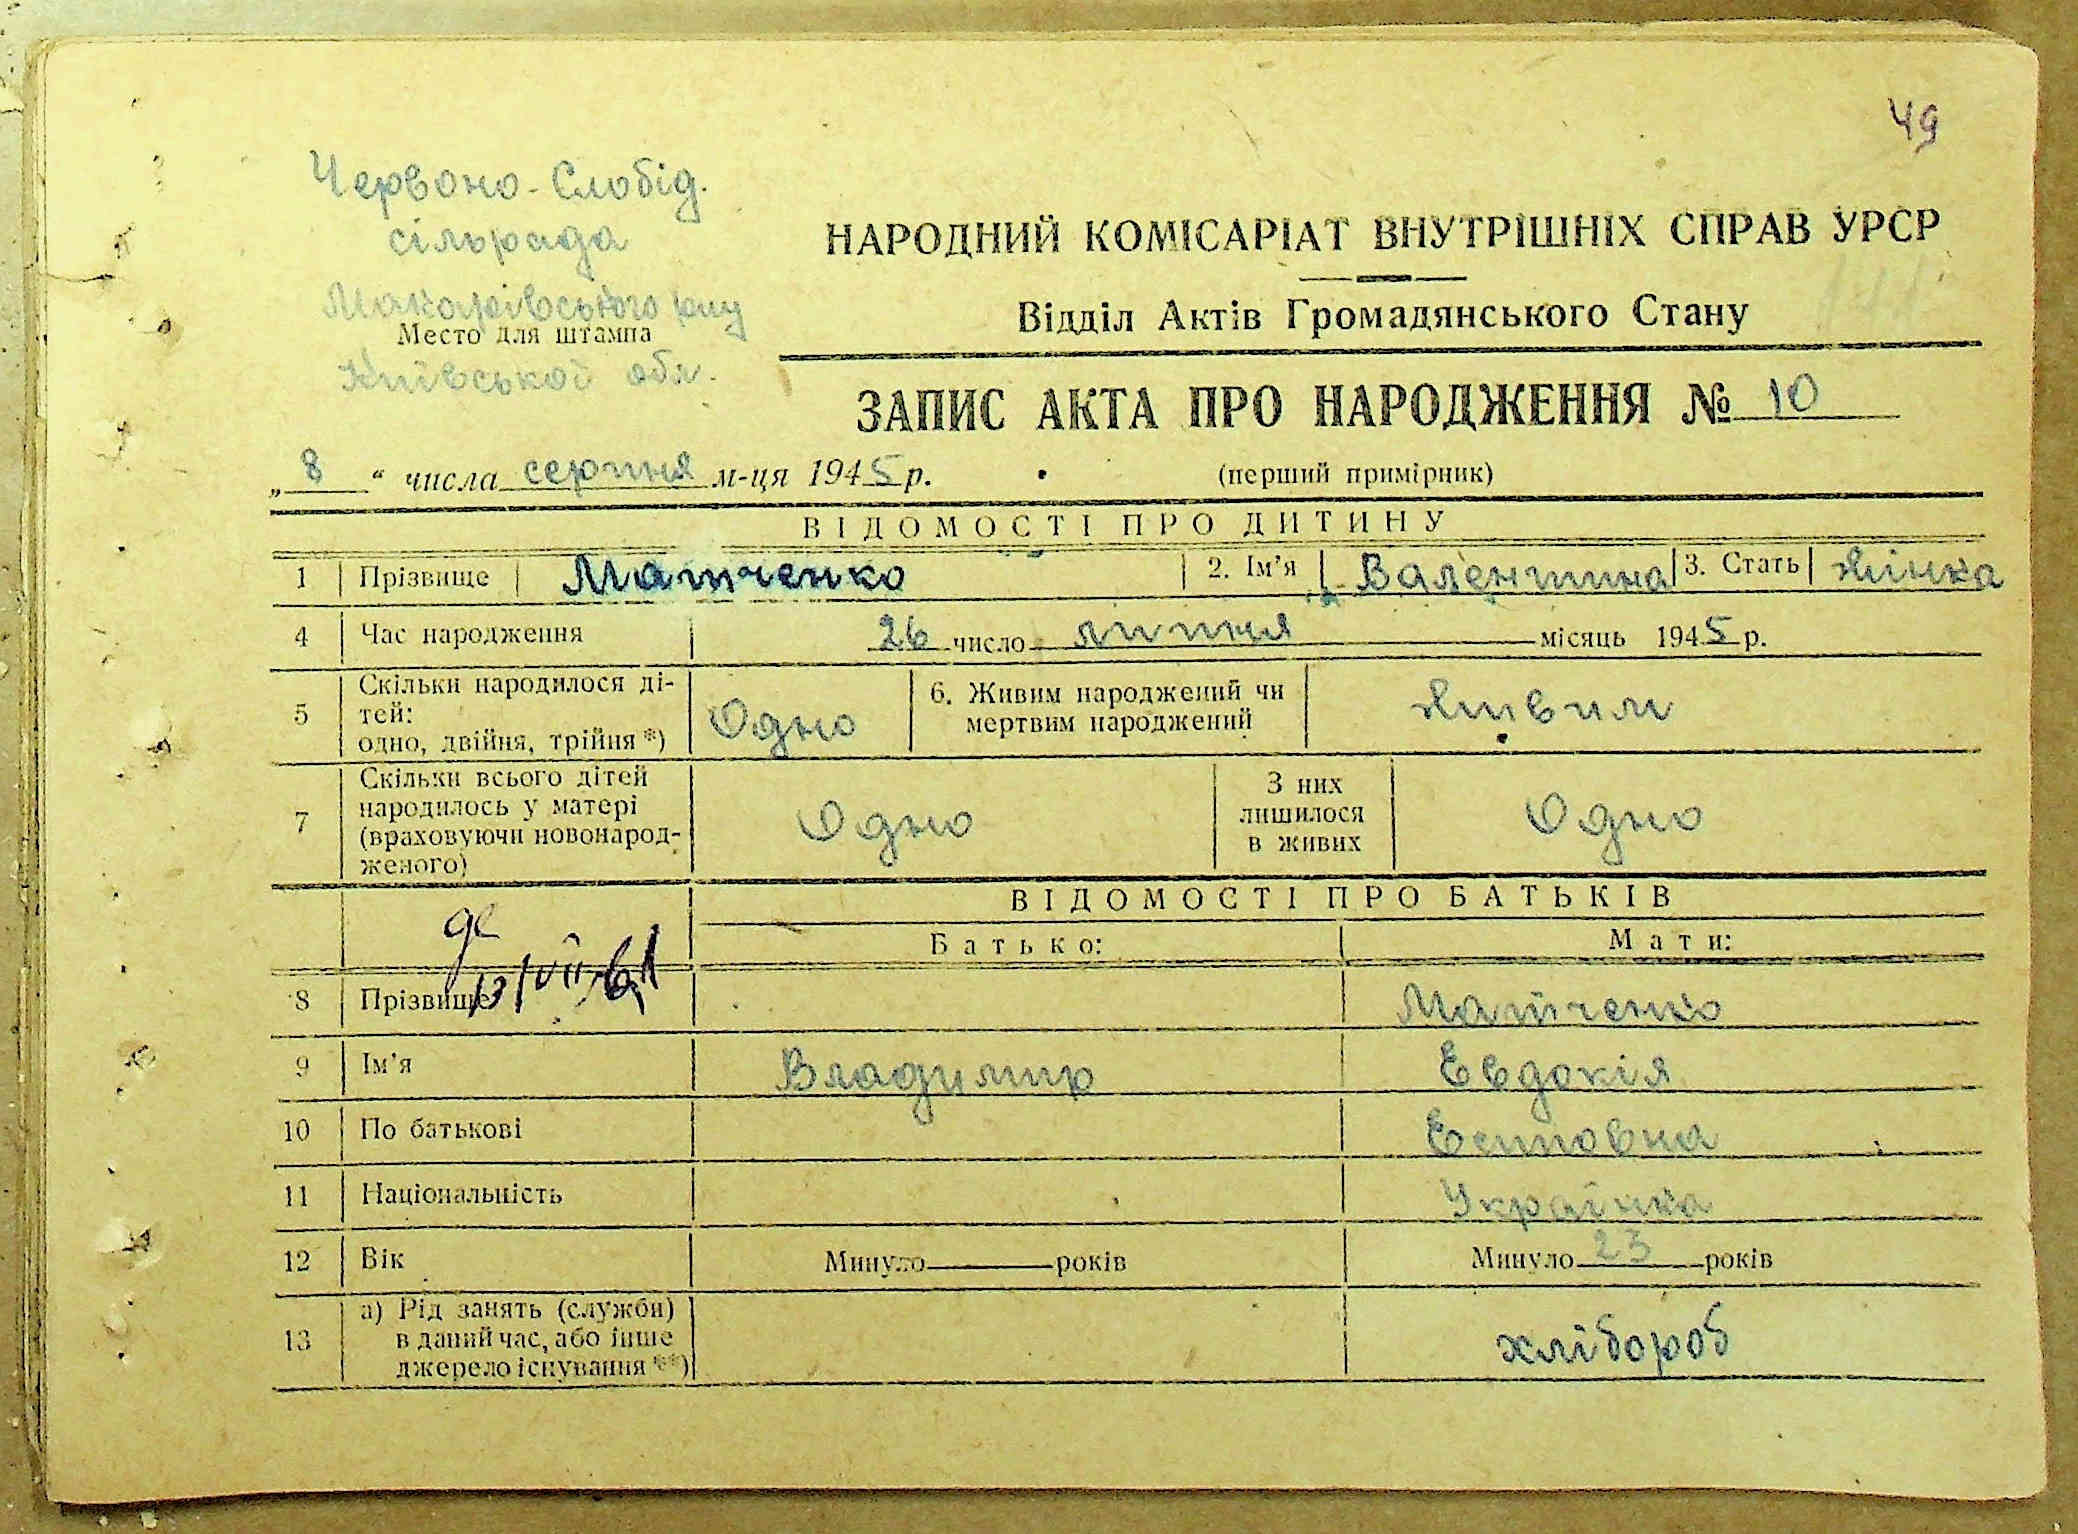 49
Червоно-Слобід.
сільрада
Макарівського р-ну
Место для штампа
Київської обл.
НАРОДНИЙ КОМІСАРІАТ ВНУТРІШНІХ СПРАВ УРСР
Відділ Актів Громадянського Стану
ЗАПИС АКТА ПРО НАРОДЖЕННЯ № 10
„8“ числа серпня м-ця 1945 р. (перший примірник)
ВІДОМОСТІ ПРО ДИТИНУ
1 Прізвище Матченко 2. Ім'я Валентина 3. Стать жінка
4 Час народження 26 число липня місяць 1945 р.
5 Скільки народилося ді-
тей:
одно, двійня, трійня *) Одно 6. Живим народжений чи
мертвим народжений живим
7 Скільки всього дітей
народилось у матері
(враховуючи новонарод-
женого) Одно З них
лишилося
в живих Одно
ВІДОМОСТІ ПРО БАТЬКІВ
Батько: Мати:
8 Прізвище Матченко
9 Ім'я Владимир Евдокія
10 По батькові
11 Національність Українка
12 Вік Минуло років Минуло 23 років
13 а) Рід занять (служби)
в даний час, або інше
джерело існування **) хлібороб